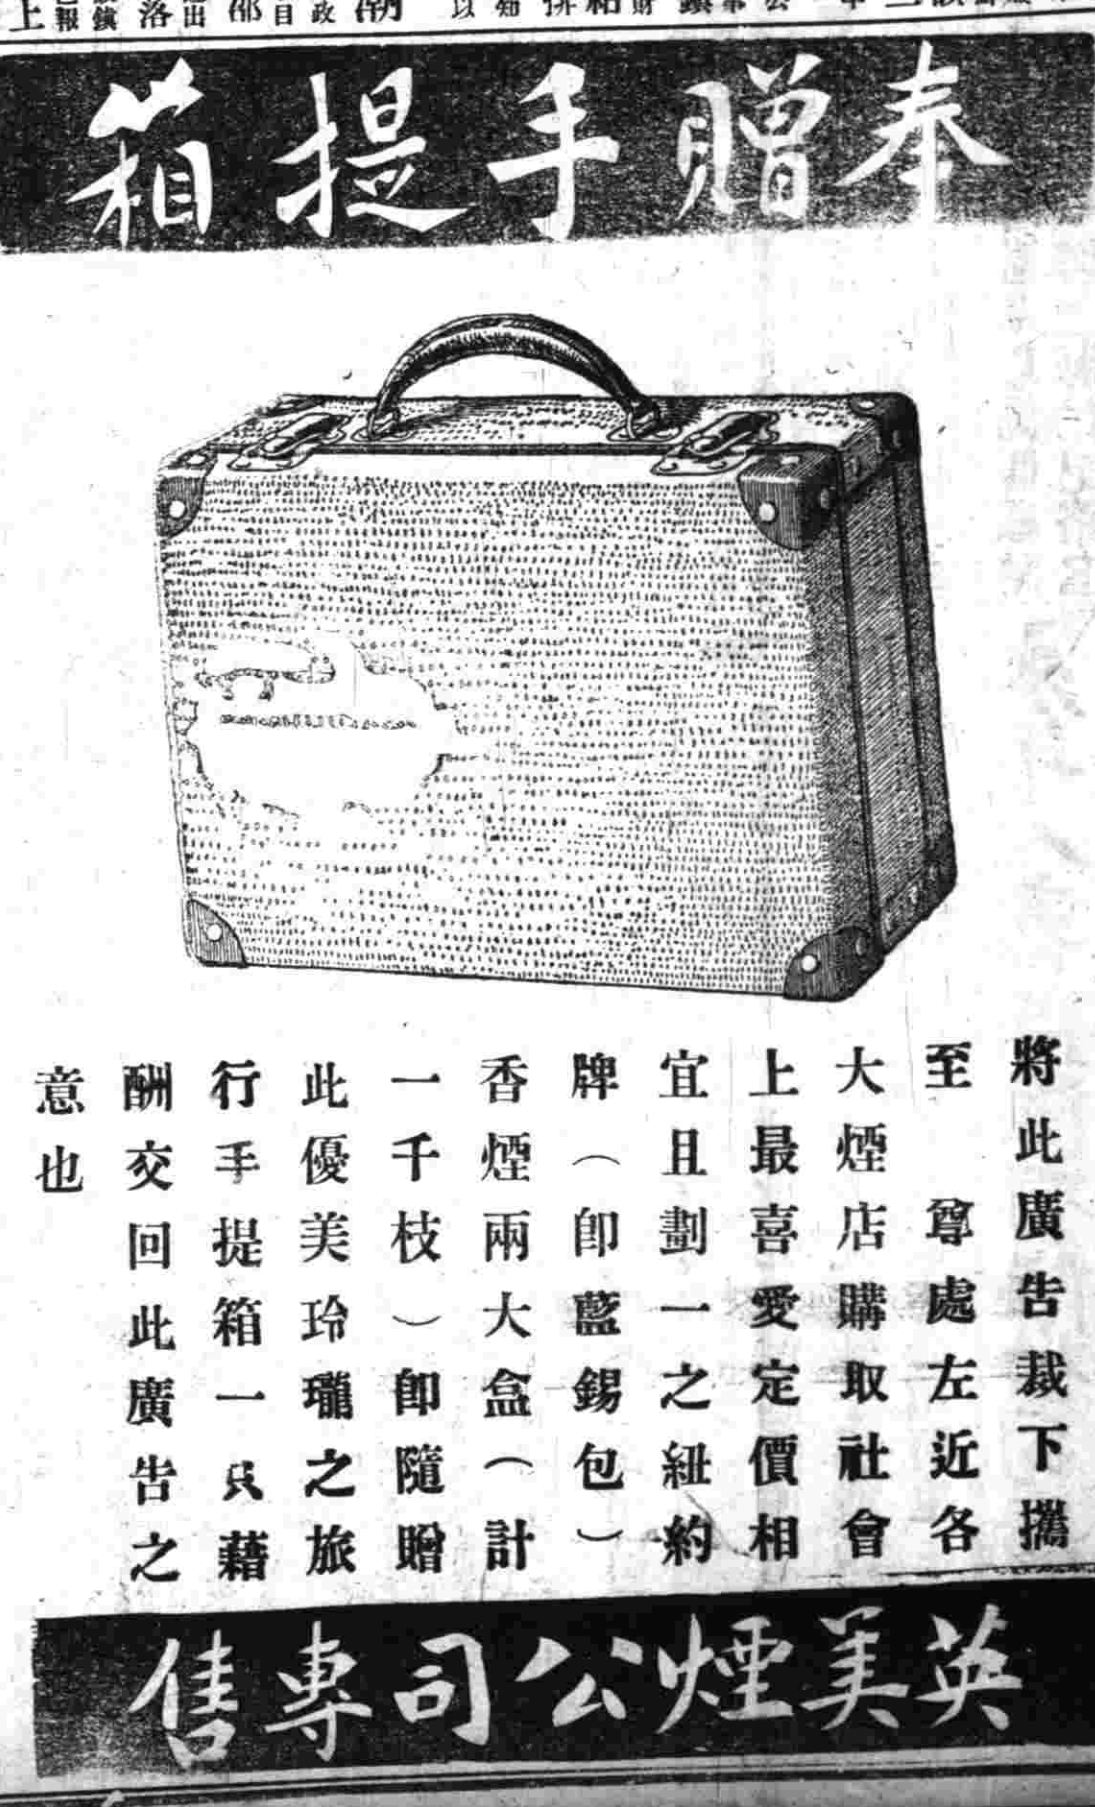 奉贈手提箱
將此廣告裁下攜
至　尊處左近各
大煙店購取社會
上最喜愛定價相
宜且劃一之紐約
牌（卽藍錫包）
香煙兩大盒（計
一千枝）卽隨贈
此優美玲瓏之旅
行手提箱一只藉
酬交回此廣告之
意也
英美煙公司專售